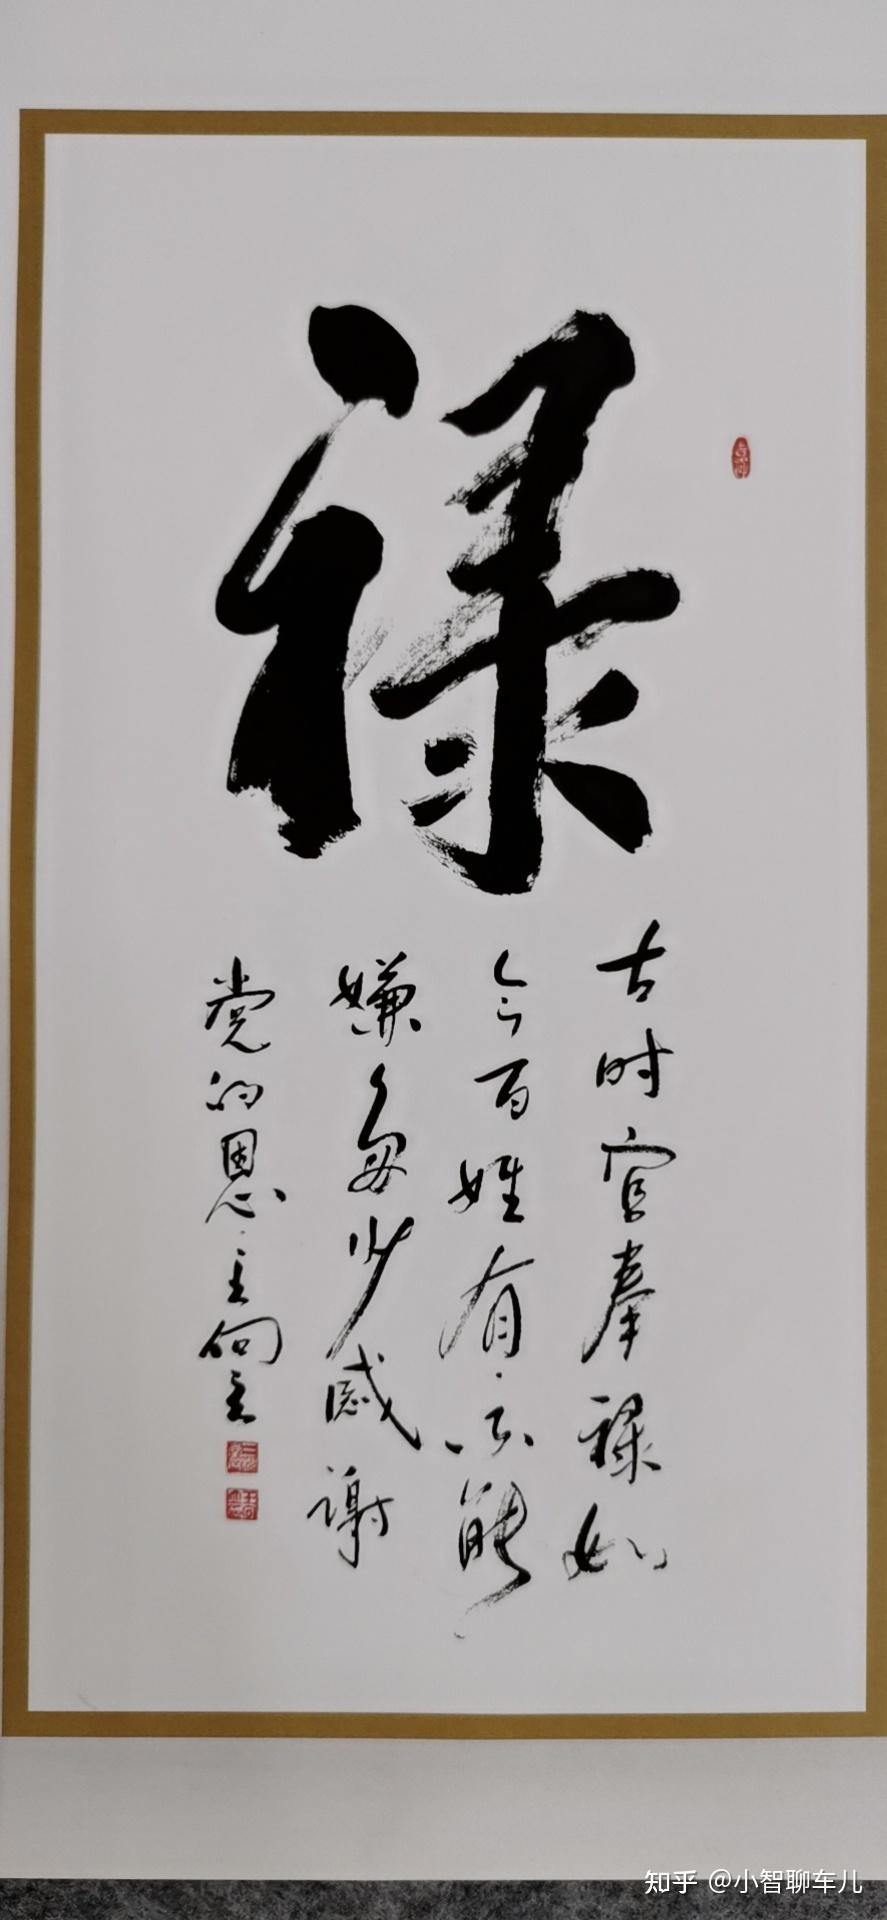 禄
古时官奉禄如
今百姓有不能
嫌多少感谢
党的恩
知乎 @小智聊车儿